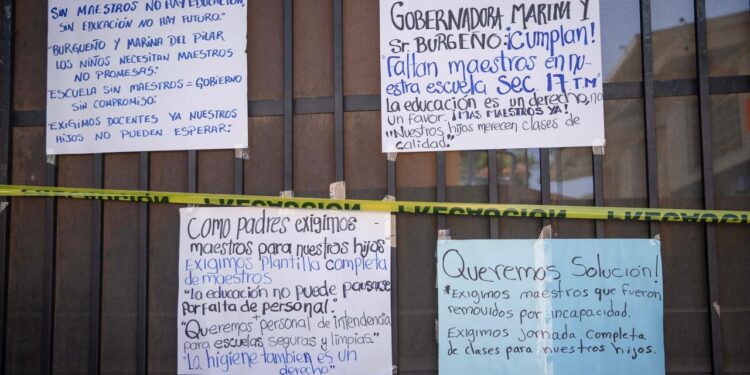 SIN MAESTROS NO HAY EDUCACIÓN,
SIN EDUCACIÓN NO HAY FUTURO."
"BURGUEÑO Y MARINA DEL PILAR
LOS NIÑOS NECESITAN MAESTROS
NO PROMESAS."
"ESCUELA SIN MAESTROS = GOBIERNO
SIN COMPROMISO."
"EXIGIMOS DOCENTES YA NUESTROS
HIJOS NO PUEDEN ESPERAR."
GOBERNADORA MARINA Y
Sr. BURGEÑO: ¡Cumplan!
"Faltan maestros en nu-
estra escuela Sec 17 T.M
La educación es un derecho, no
un favor. ¡MAS MAESTROS YA!
"Nuestros hijos merecen clases de
calidad."
PRECAUCION PRECAUCION PRECAUCION
Como padres exigimos
maestros para nuestros hijos
Exigimos Plantilla completa
de maestros
"La educación no puede pausarse
por falta de personal."
"Queremos personal de intendencia
para escuelas seguras y limpias."
"La higiene tambien es un
derecho"
Queremos Solución!
*Exigimos maestros que fueron
removidos por incapacidad.
Exigimos jornada completa
de clases para nuestros hijos.